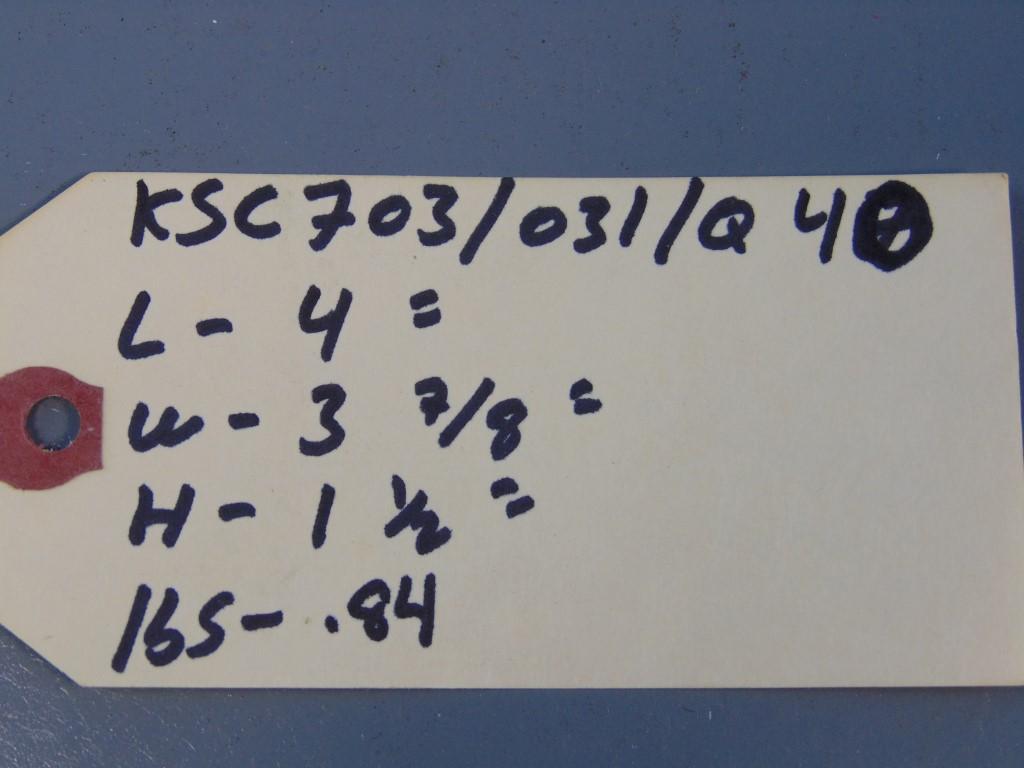 KSC703/031/Q 4
L - 4 "
W - 3 7/8 "
H - 1 1/2 "
lbs - .84